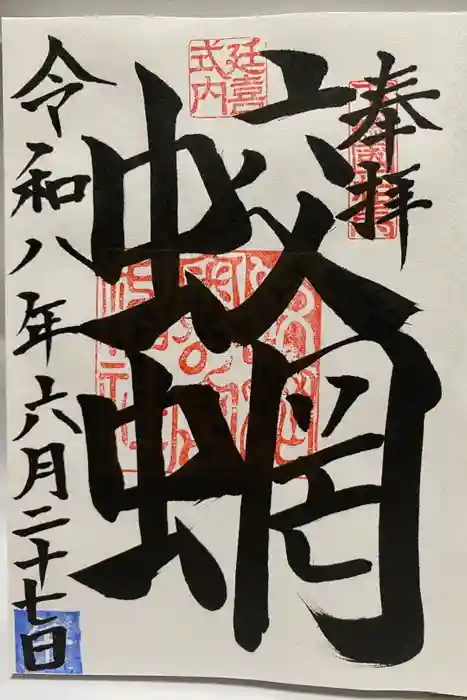 奉拝
延喜
式内
蛟蝄
令和八年六月二十七日